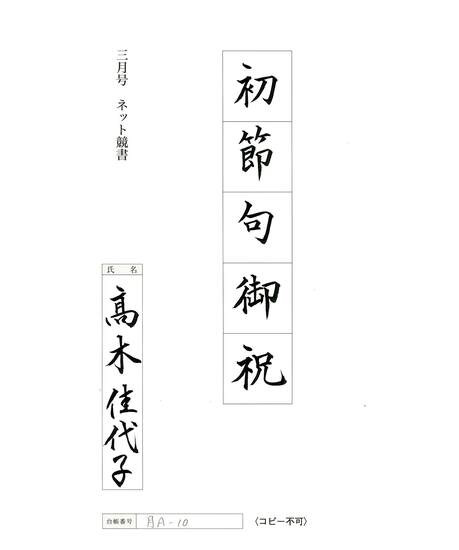 初節句御祝
三月号 ネット競書
氏名
髙木佳代子
台帳番号 月A-10
〈コピー不可〉